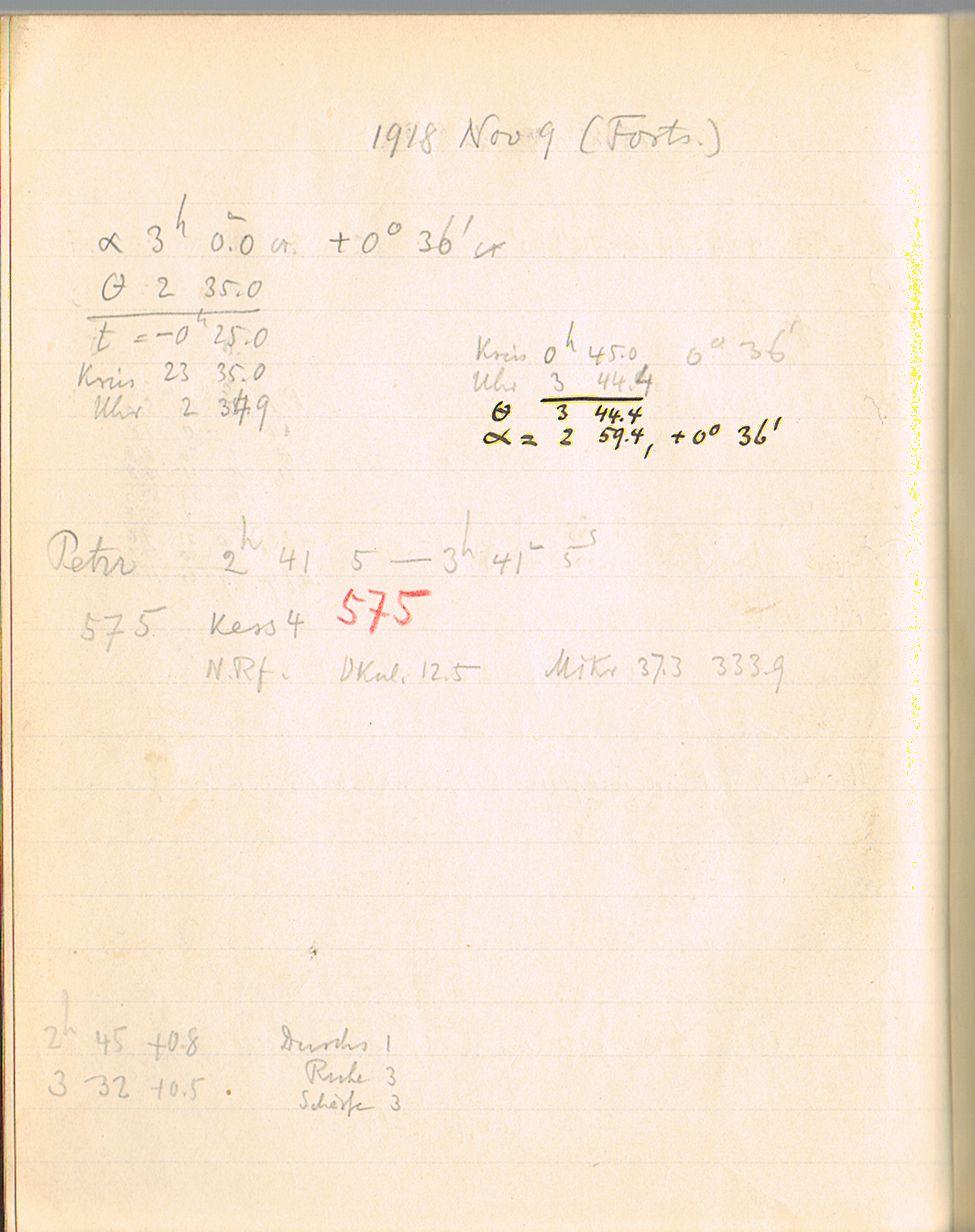 1918 Nov 9 (Forts.)
α 3ʰ 0.0 cr. +0° 36' cr
θ 2 35.0
t = -0ʰ 25.0
Kreis 23 35.0
Uhr 2 34.9
Kreis 0ʰ 45.0 0° 36'
Uhr 3 44.4
θ 3 44.4
α = 2 59.4, +0° 36'
Petzr 2ʰ 41 5 — 3ʰ 41ᵐ 5ˢ
575 Kass 4 575
N.Rf. OKul. 12.5 Mikr 37.3 333.9
2ʰ 45 +0.8 Durchs 1
3 32 +0.5 Ruhe 3
Schärfe 3